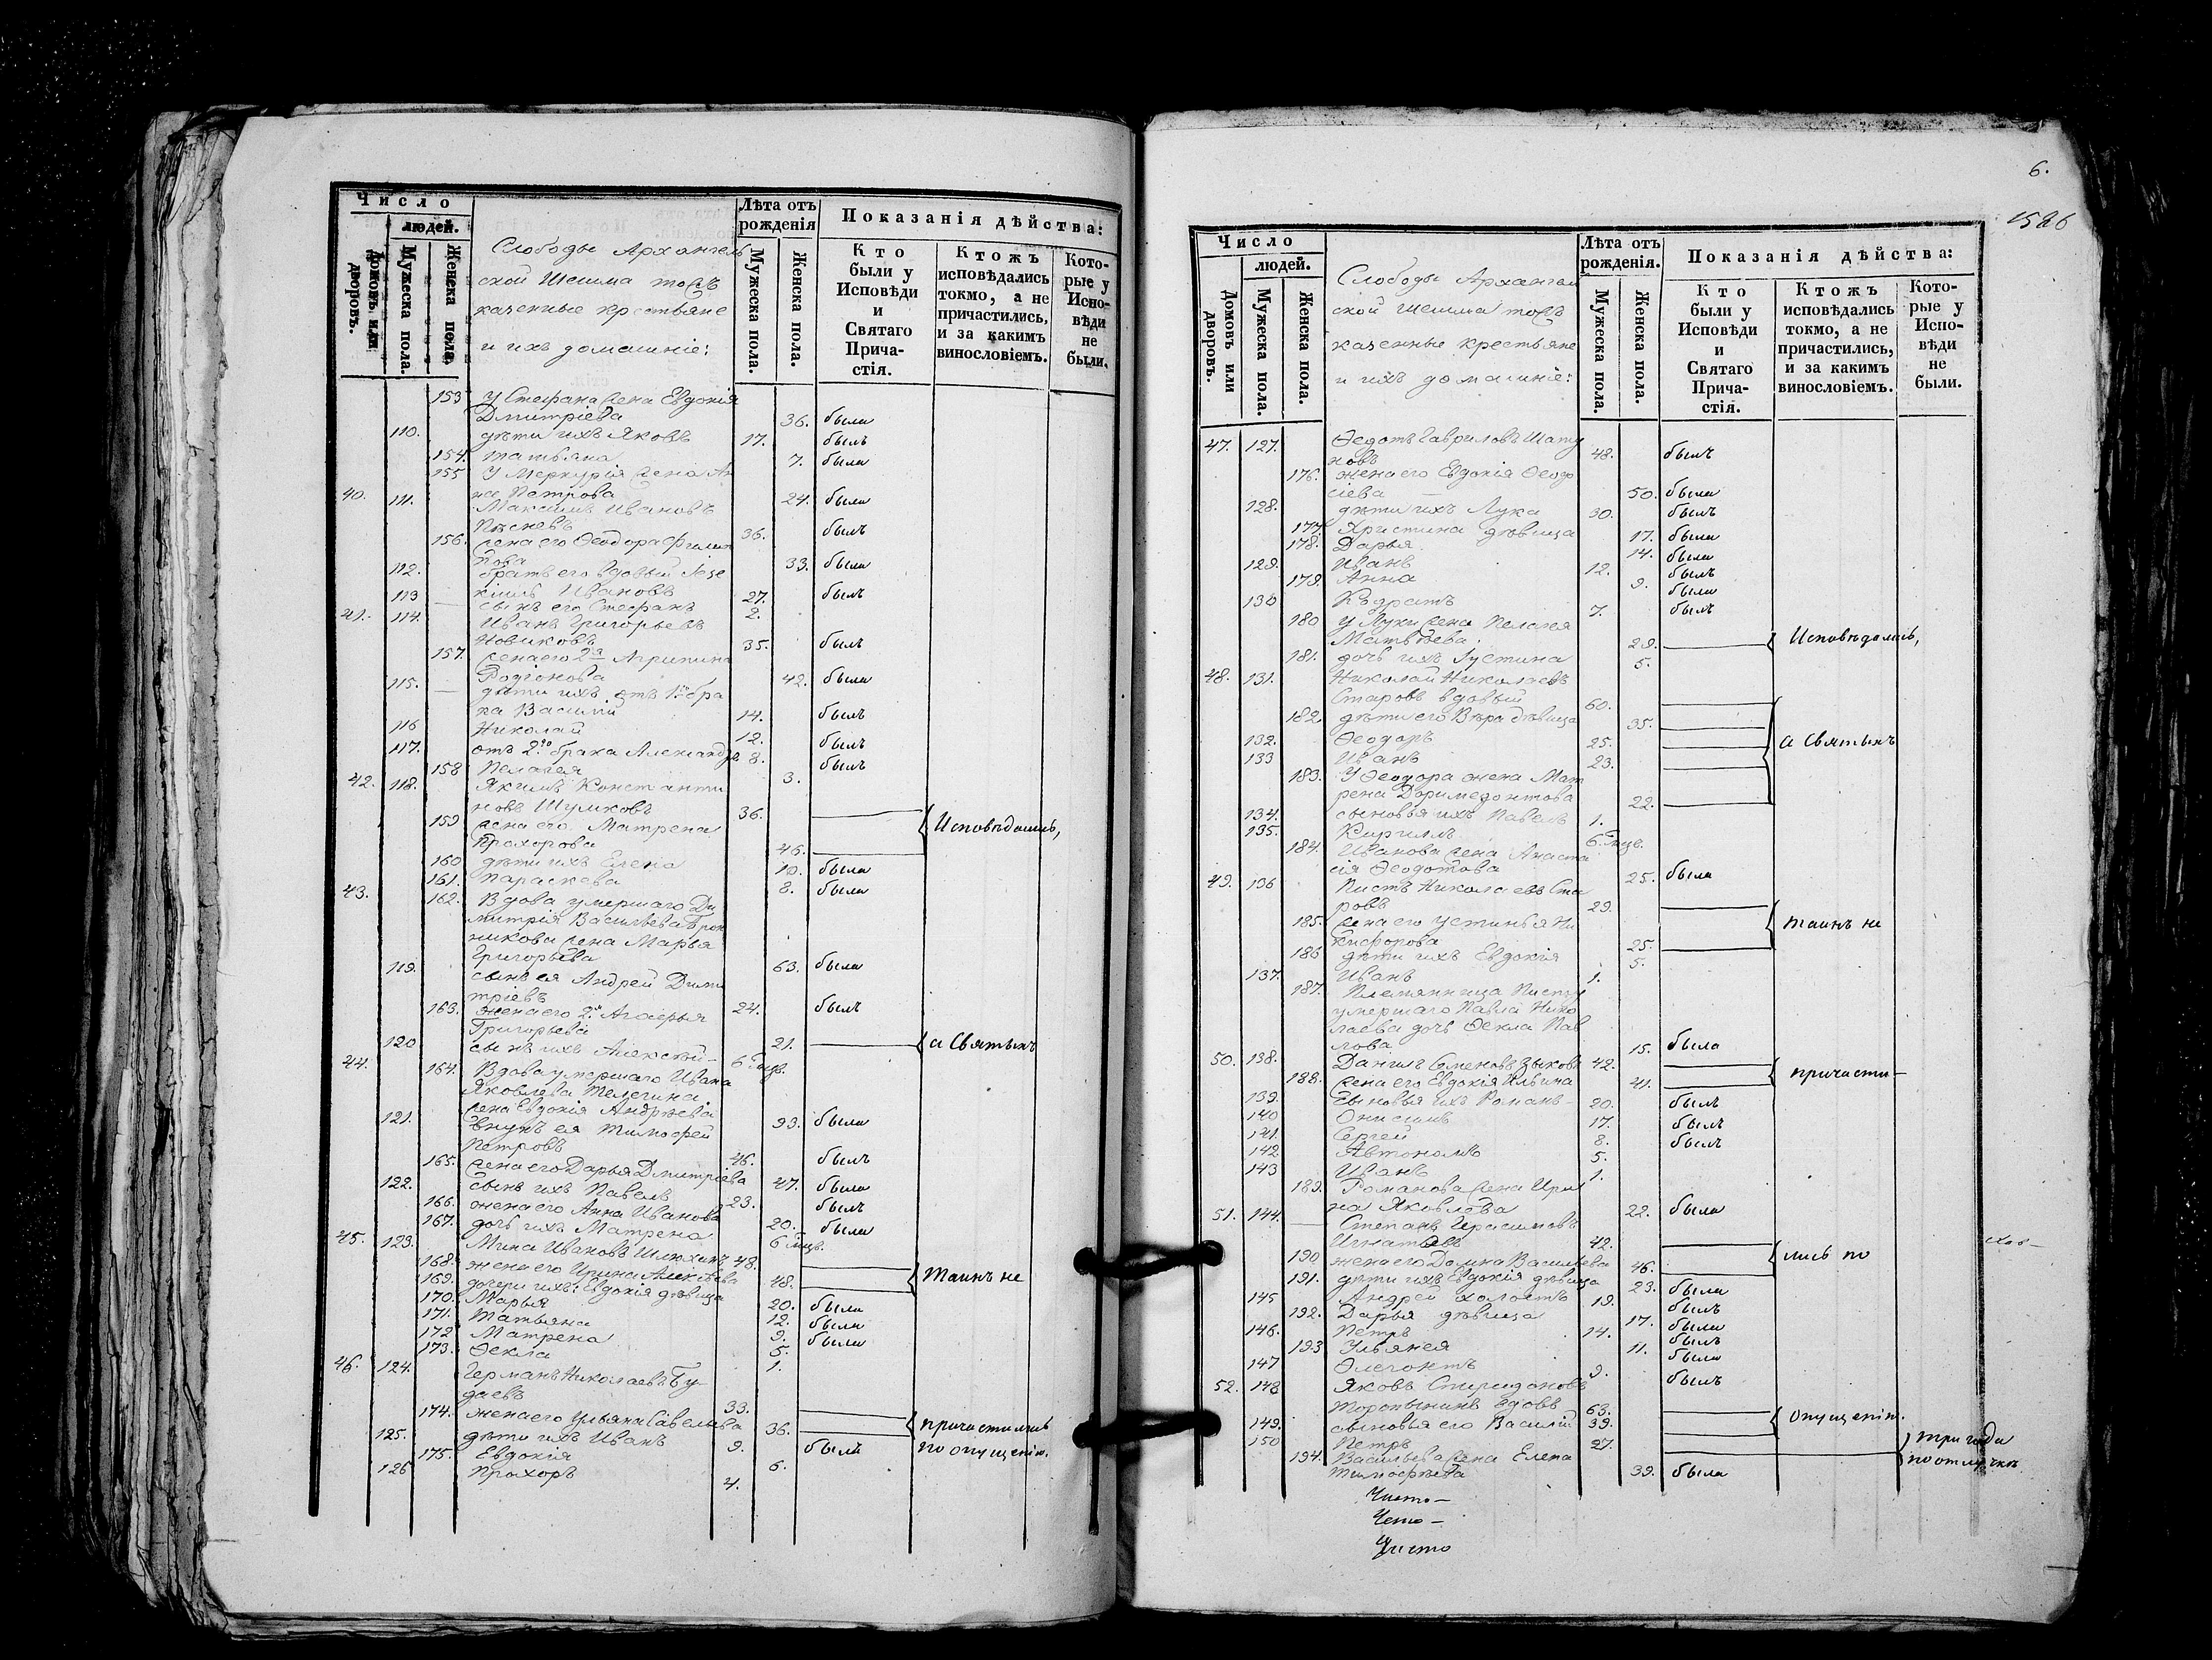 Число
людей.
Домовъ или дворовъ.
Мужеска пола.
Женска пола.
Слободы Архангель
ской Шешма тожъ
казенные крестьяне
и ихъ домашніе:
Лѣта отъ рожденія
Мужеска пола.
Женска пола.
Показанія дѣйства:
Кто были у Исповѣди и Святаго Прича-стія.
Ктожъ исповѣдались токмо, а не причастились, и за какимъ винословіемъ.
Кото-рые у Испо-вѣди не были.
153 У Стефана жена Евдокія
Дмитріева 36. была
110. дѣти ихъ Яковъ 17. былъ
154. Татьяна 7. была
155 У Меркурія жена Ан
на Петрова 24. была
40. 111. Максимъ Ивановъ
36. былъ
156. жена его Ѳеодора Филип
пова 33. была
112. братъ его вдовый Іезе
кіиль Ивановъ 27. былъ
113 сынъ его Стефанъ 2.
41. 114. Иванъ Григорьевъ
Новиковъ 35. былъ
157. жена его 2я Агрипина
Родіонова 42. была
115. дѣти ихъ отъ 1го бра
ка Василій 14. былъ
116 Николай 12. былъ
117. отъ 2го брака Александръ 8. былъ
158 Пелагея 3.
42. 118. Якимъ Константи
новъ Шумковъ 36. Исповѣдались,
159 жена его Матрена
Прохорова 46.
160 дѣти ихъ Елена 10. была
161. Параскева 8. была
43. 162. Вдова умершаго Ди
митрія Васильева
жена Марья
Григорьева 63. была
119. сынъ ея Андрей Дими
тріевъ 24. былъ
163. жена его 2я Агафья
Григорьева 21. а Святыхъ
120 сынъ ихъ Алексѣй 6 мцв.
44. 164. Вдова умершаго Ивана
Яковлева Телегина
жена Евдокія Андреева 93. была
121. внукъ ея Тимофей
Петровъ 46. былъ
165. жена его Дарья Дмитріева 47. была
122. сынъ ихъ Павелъ 23. былъ
166. жена его Анна Иванова 20. была
167. дочь ихъ Матрена 6 мцв.
45. 123. Мина Ивановъ 48. Таинъ не
168. жена его Ирина Алексѣева 48.
169. дочери ихъ: Евдокія дѣвица 20. была
170. Марья 12. была
171. Татьяна 9. была
172 Матрена 5.
173. Ѳекла 1.
46. 124. Германъ Николаевъ Бу-
даевъ 33. причастились
174. жена его Ульяна Савельева 36. по опущенію.
125. дѣти ихъ Иванъ 9. былъ
175. Евдокія 6.
126 Прохоръ 4.
6.
1526
Число
людей.
Домовъ или дворовъ.
Мужеска пола.
Женска пола.
Слободы Архангель
ской Шешма тожъ
казенные крестьяне
и ихъ домашніе:
Лѣта отъ рожденія.
Мужеска пола.
Женска пола.
Показанія дѣйства:
Кто были у Исповѣди и Святаго Прича-стія.
Ктожъ исповѣдались токмо, а не причастились, и за какимъ винословіемъ.
Кото-рые у Испо-вѣди не были.
47. 127. Ѳедотъ Гавриловъ Шату
новъ 48. былъ
176. жена его Евдокія Ѳеодо
сіева 50. была
128. дѣти ихъ Лука 30. былъ
177. Христина дѣвица 17. была
178. Дарья 14. была
129. Иванъ 12. былъ
179. Анна 9. была
130 Кодратъ 7. былъ
180 У Луки жена Пелагея
Матвѣева 29. Исповѣдались,
181. дочь ихъ Іустина 5.
48. 131. Николай Николаевъ
Старовъ вдовый 60.
182 дѣти его Вѣра дѣвица 35.
132. Ѳеодоръ 25. а Святыхъ
133 Иванъ 23.
183. У Ѳеодора жена Мат
рена Доримедонтова 22.
134. сыновья ихъ Павелъ 1.
135. Кириллъ 6 мцв.
184. Иванова жена Анаста
сія Ѳеодотова 25. была
49. 136 Пистъ Николаевъ Ста
ровъ 29.
185. жена его Устинья Ни
кифорова 25. Таинъ не
186 дѣти ихъ Евдокія 5.
137. Иванъ 1.
187. Племянница Писту
умершаго Павла Нико
лаева дочь Ѳекла Пав
лова 15. была
50. 138. Данилъ Семеновъ Зыковъ 42.
188. жена его Евдокія Ильина 41. причасти-
139. сыновья ихъ Романъ 20. былъ
140 Онисимъ 17. былъ
141. Сергей 8. былъ
142 Автономъ 5.
143 Иванъ 1.
189. Романова жена Ири
на Яковлева 22. была
51. 144. Степанъ Герасимовъ
Игнатьевъ 42.
190 жена его Домна Васильева 46. лись по
191. дѣти ихъ Евдокія дѣвица 23. была
145 Андрей холостъ 19. былъ
192. Дарья дѣвица 17. была
146. Петръ 14. былъ
193 Ульянея 11. была
147 Флегонтъ 9. былъ
52. 148 Яковъ Спиридоновъ
Торопынинъ вдовъ 63. опущенію.
149. сыновья его Василій 39.
150 Петръ 27. три года
по отлучкѣ
194. Васильева жена Елена
Тимофѣева 39. была
Чисто-
Чисто-
Чисто